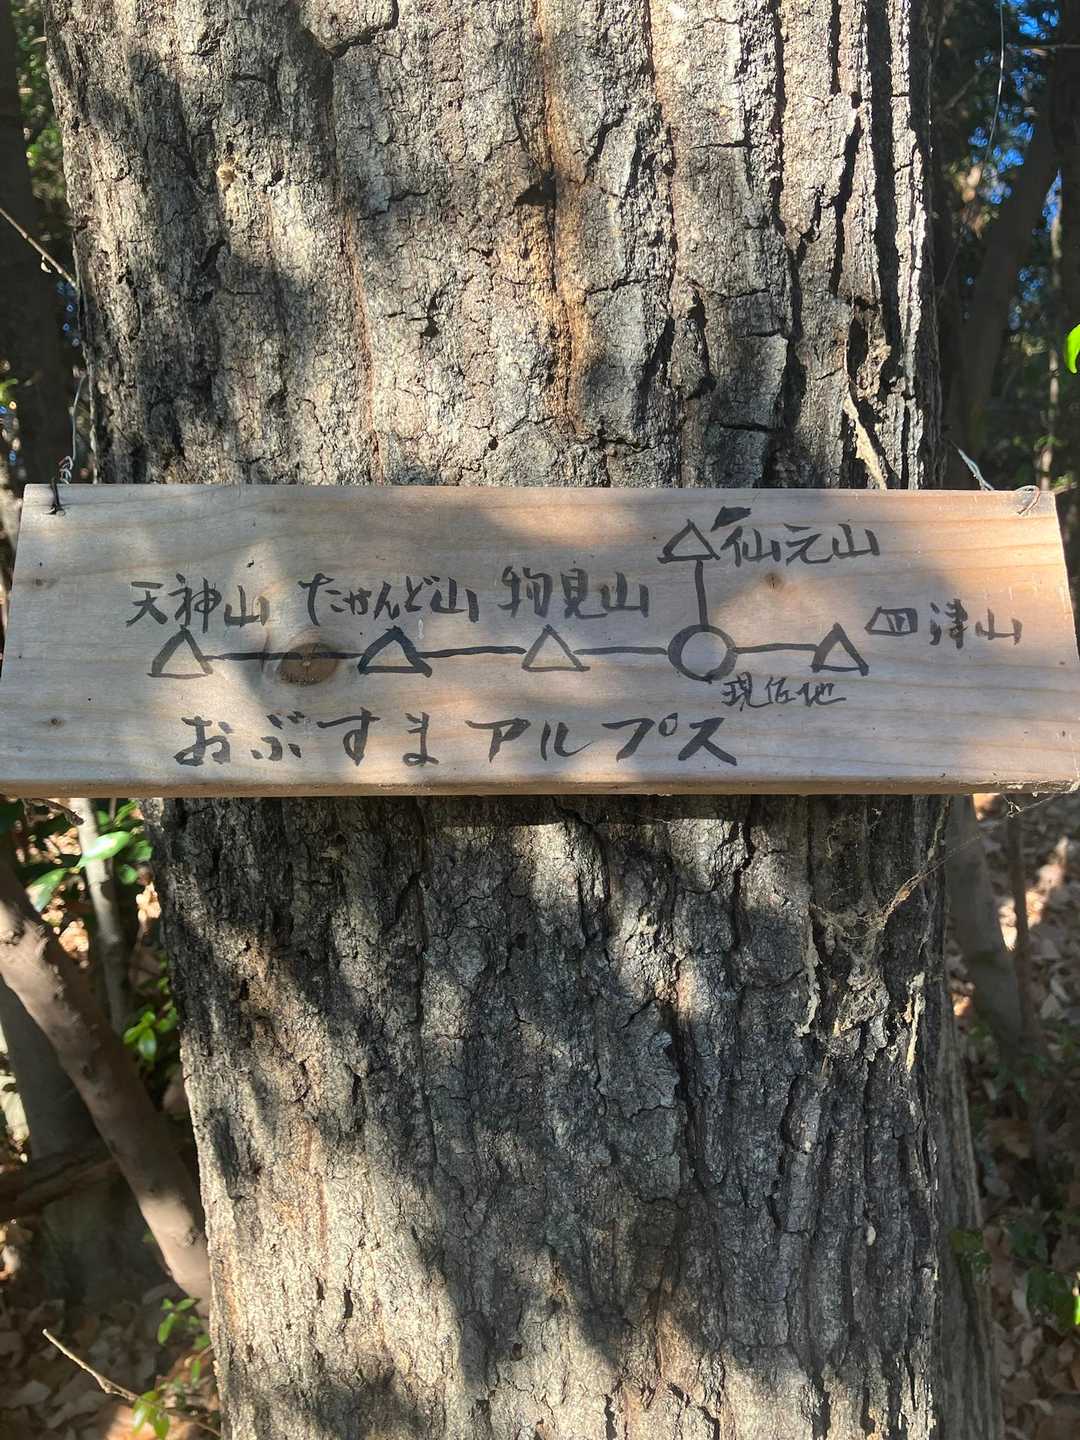 仙元山
天神山 たかんど山 物見山 四津山
現在地
おぶすまアルプス